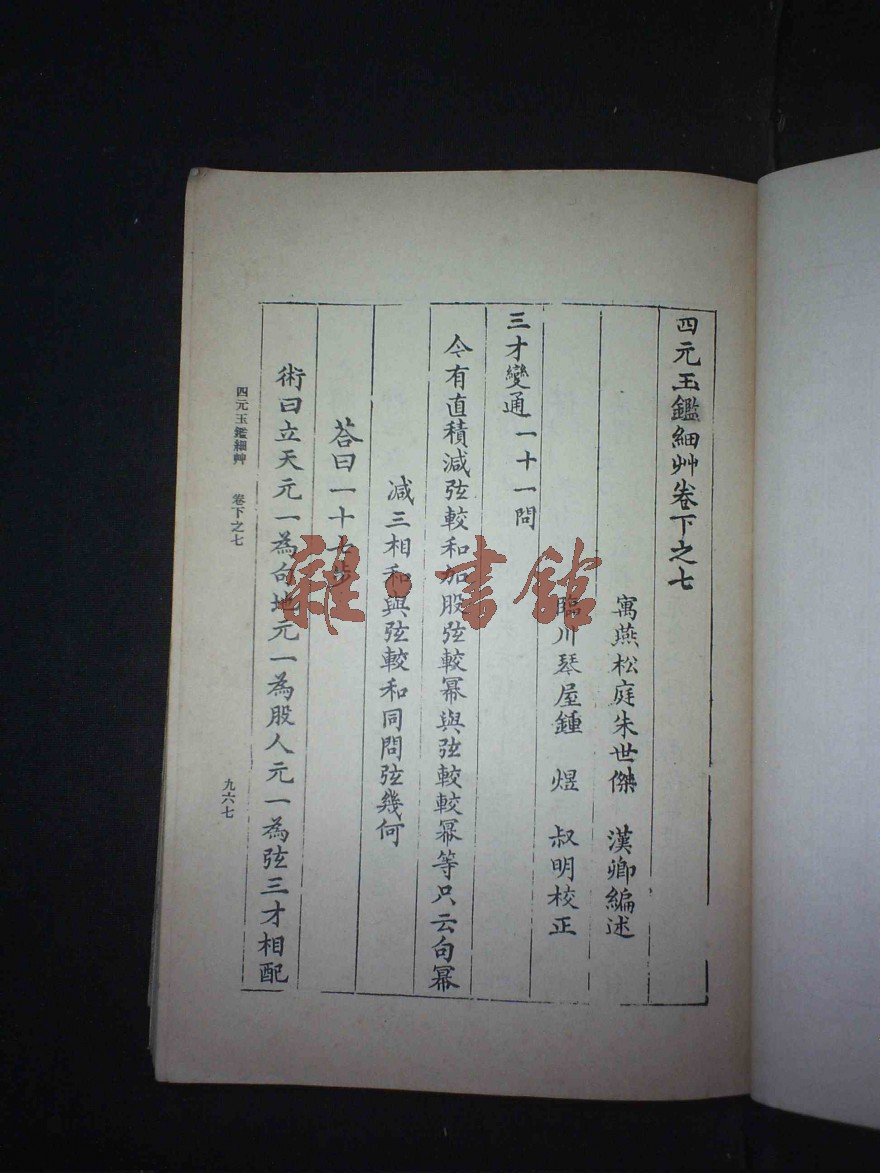 四元玉鑑細艸卷下之七
寓燕松庭朱世傑 漢卿編述
臨川琴屋鍾 煜 叔明校正
三才變通一十一問
今有直積減弦較和加股弦較冪與弦較較冪等只云句冪
減三相和與弦較和同問弦幾何
荅曰一十七步
術曰立天元一為句地元一為股人元一為弦三才相配
四元玉鑑細艸 卷下之七
九六七
雜·書館